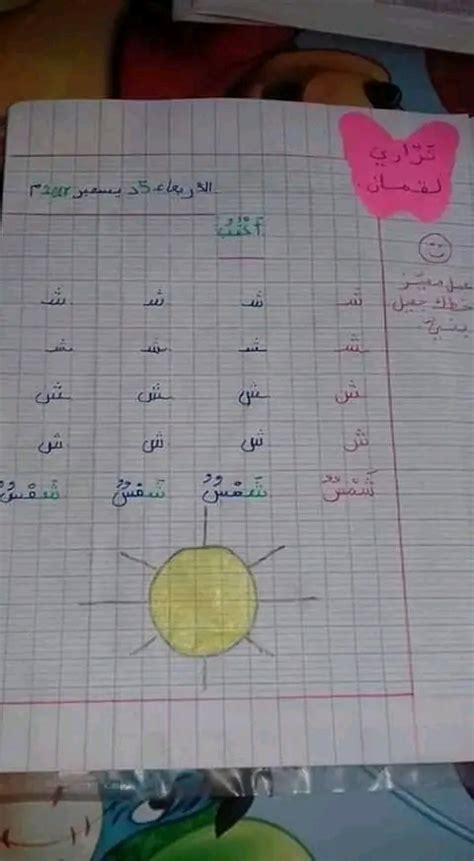 تزاري
لقمان
الأربعاء 5 ديسمبر 2018م
أَكْتُبُ
عمل مميّز
خطك جميل
يا بني
شـ شـ شـ شـ
ـشـ ـشـ ـشـ ـشـ
ـش ـش ـش ـش
ش ش ش ش
شَمْسٌ شَمْسٌ شَمْسٌ شَمْسٌ